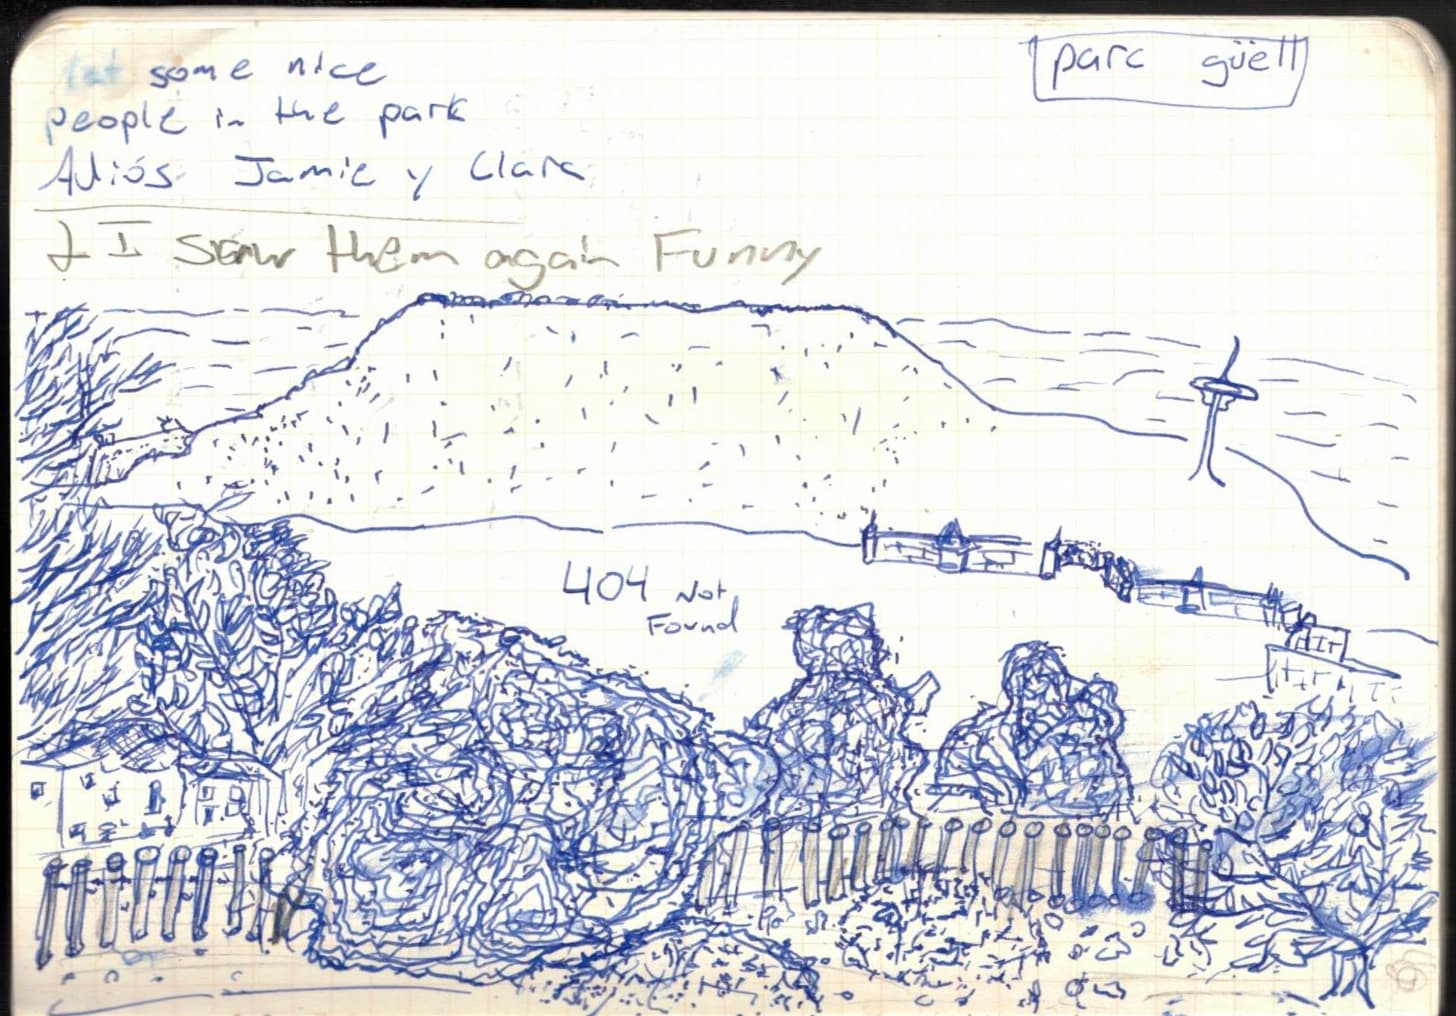 some nice
people in the park
Adiós Jamie y Clara
I saw them again Funny
parc güell
404 Not
Found